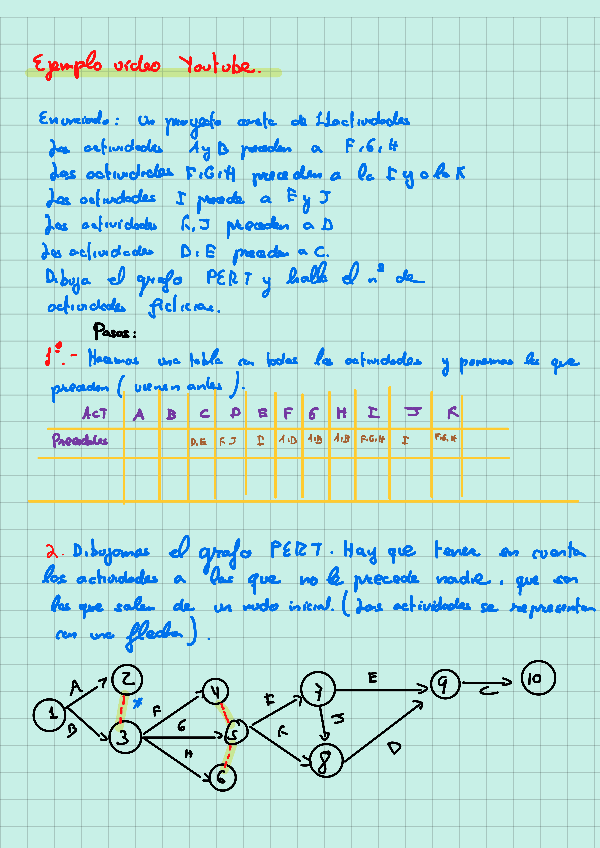 Ejemplo video Youtube.
Enunciado: Un proyecto consta de 11 actividades
Las actividades A y B preceden a F, G, H
Las actividades F, G, H preceden a la I y a la K
Las actividades I precede a E y J
Las actividades K, J preceden a D
Las actividades D, E preceden a C.
Dibuja el grafo PERT y halla el nº de
actividades ficticias.
Pasos:
1º.- Hacemos una tabla con todas las actividades y ponemos las que
preceden (vienen antes).
ACT A B C D E F G H I J K
Precedentes D,E K J I A,B A,B A,B F,G,H I F,G,H
2. Dibujamos el grafo PERT. Hay que tener en cuenta
las actividades a las que no le precede nadie, que son
las que salen de un nudo inicial. (Las actividades se representan
con una flecha).
A 2 4 I 7 E 9 C 10
1 * F
B 3 G 5 K J
H 6 8 D